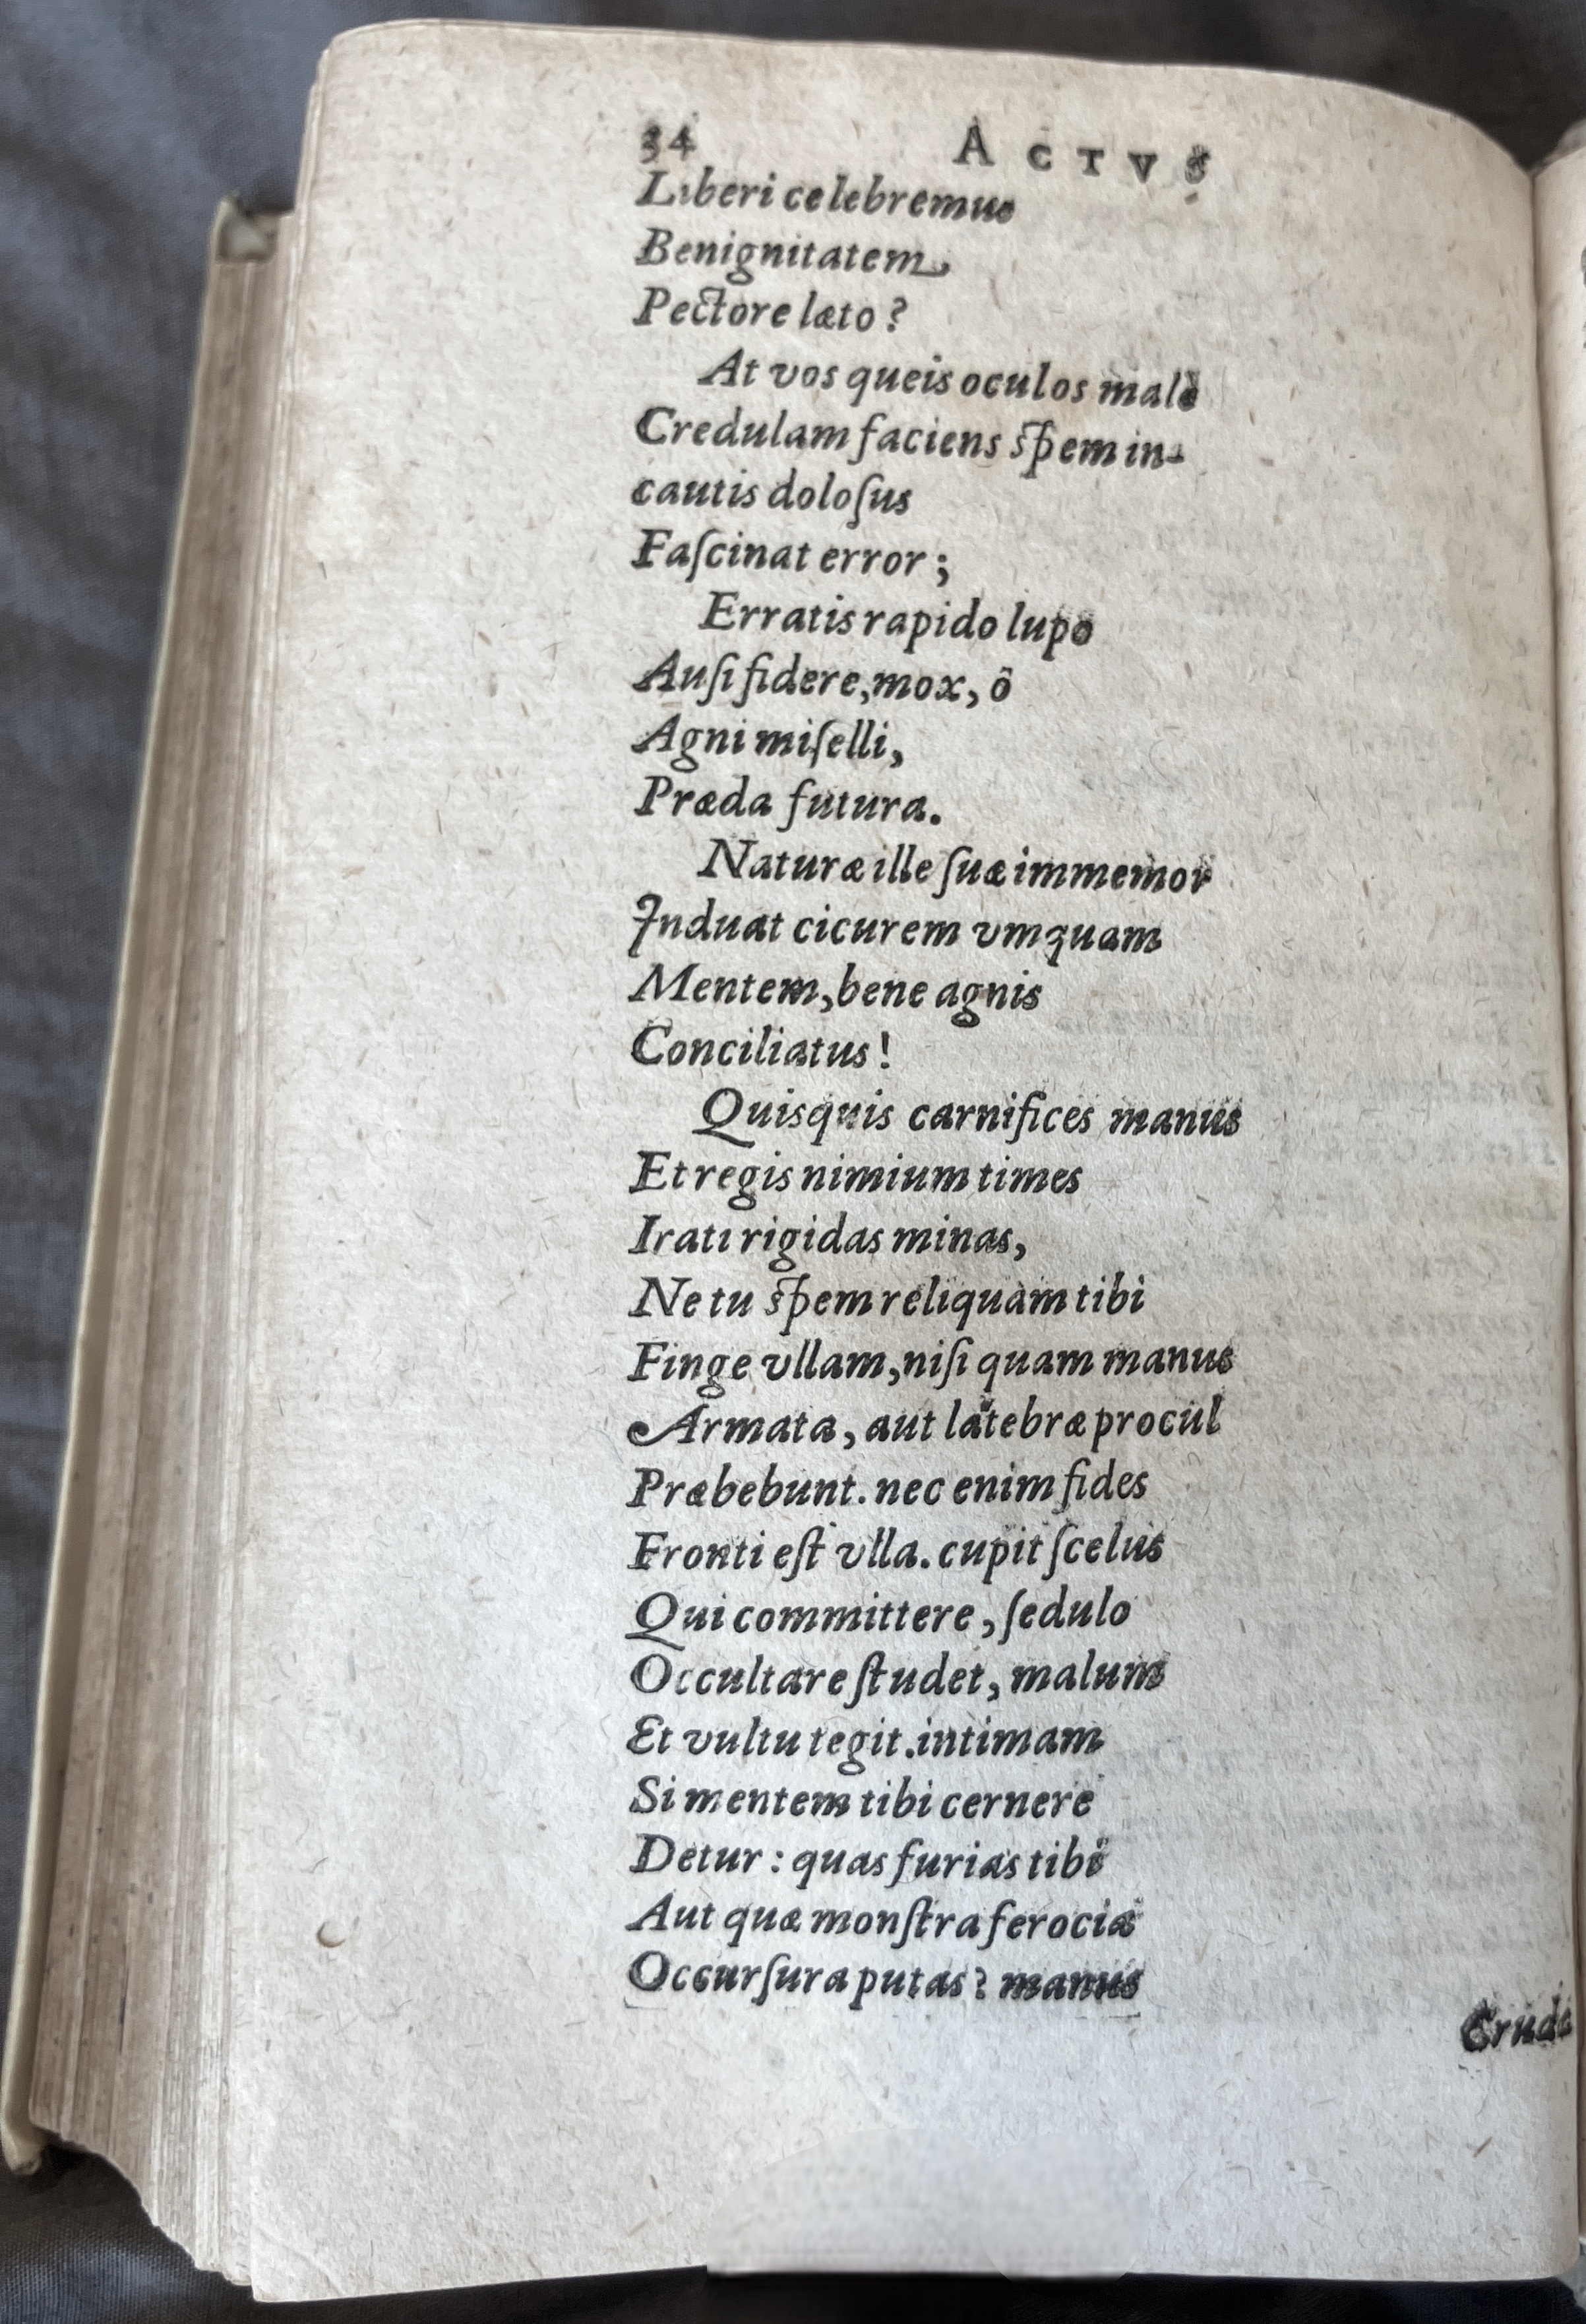 34 ACTVS
Liberi celebremus
Benignitatem
Pectore læto?
At vos queis oculos malè
Credulam faciens ſpem in-
cautis doloſus
Faſcinat error;
Erratis rapido lupo
Auſi fidere, mox, ô
Agni miſelli,
Præda futura.
Naturæ ille ſuæ immemor
Induat cicurem vmquam
Mentem, bene agnis
Conciliatus!
Quisquis carnifices manus
Et regis nimium times
Irati rigidas minas,
Ne tu ſpem reliquam tibi
Finge vllam, niſi quam manus
Armata, aut latebræ procul
Præbebunt. nec enim fides
Fronti eſt vlla. cupit ſcelus
Qui committere, ſedulo
Occultare ſtudet, malum
Et vultu tegit. intimam
Si mentem tibi cernere
Detur: quas furias tibi
Aut quæ monſtra ferociæ
Occurſura putas? manus